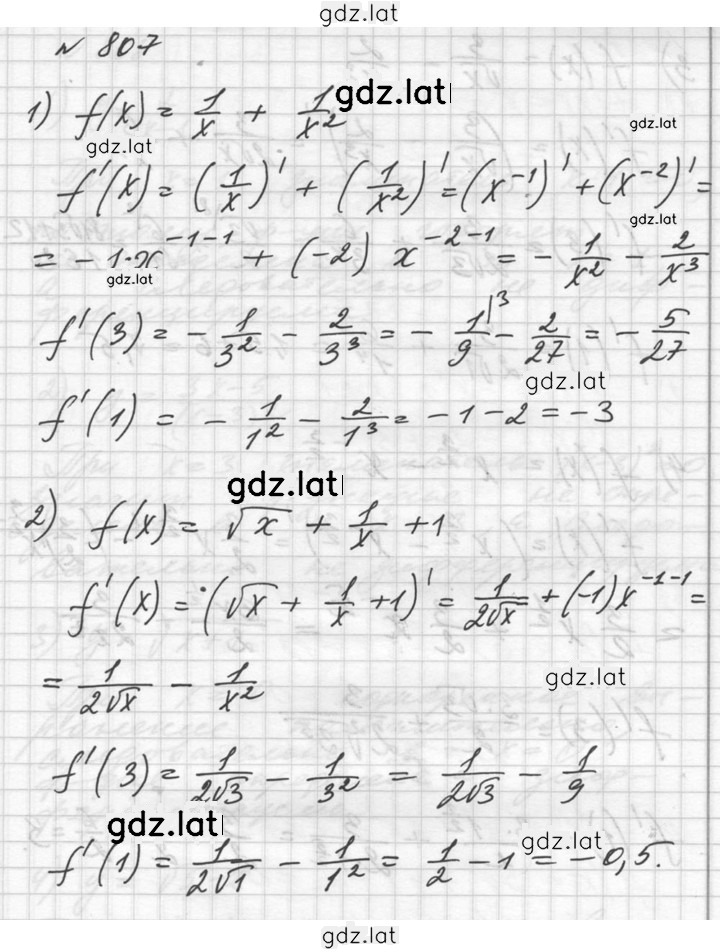 gdz.lat
№ 807
1) f(x) = 1/x + 1/x²
gdz.lat
gdz.lat
gdz.lat
f'(x) = (1/x)' + (1/x²)' = (x⁻¹)' + (x⁻²)' =
gdz.lat
= -1·x⁻¹⁻¹ + (-2) x⁻²⁻¹ = - 1/x² - 2/x³
gdz.lat
f'(3) = - 1/3² - 2/3³ = - 1/9 |³ - 2/27 = - 5/27
gdz.lat
f'(1) = - 1/1² - 2/1³ = -1-2 = -3
gdz.lat
2) f(x) = √x + 1/x + 1
f'(x) = (√x + 1/x + 1)' = 1/(2√x) + (-1)x⁻¹⁻¹ =
= 1/(2√x) - 1/x²
gdz.lat
f'(3) = 1/(2√3) - 1/3² = 1/(2√3) - 1/9
gdz.lat
gdz.lat
f'(1) = 1/(2√1) - 1/1² = 1/2 - 1 = -0,5.
gdz.lat